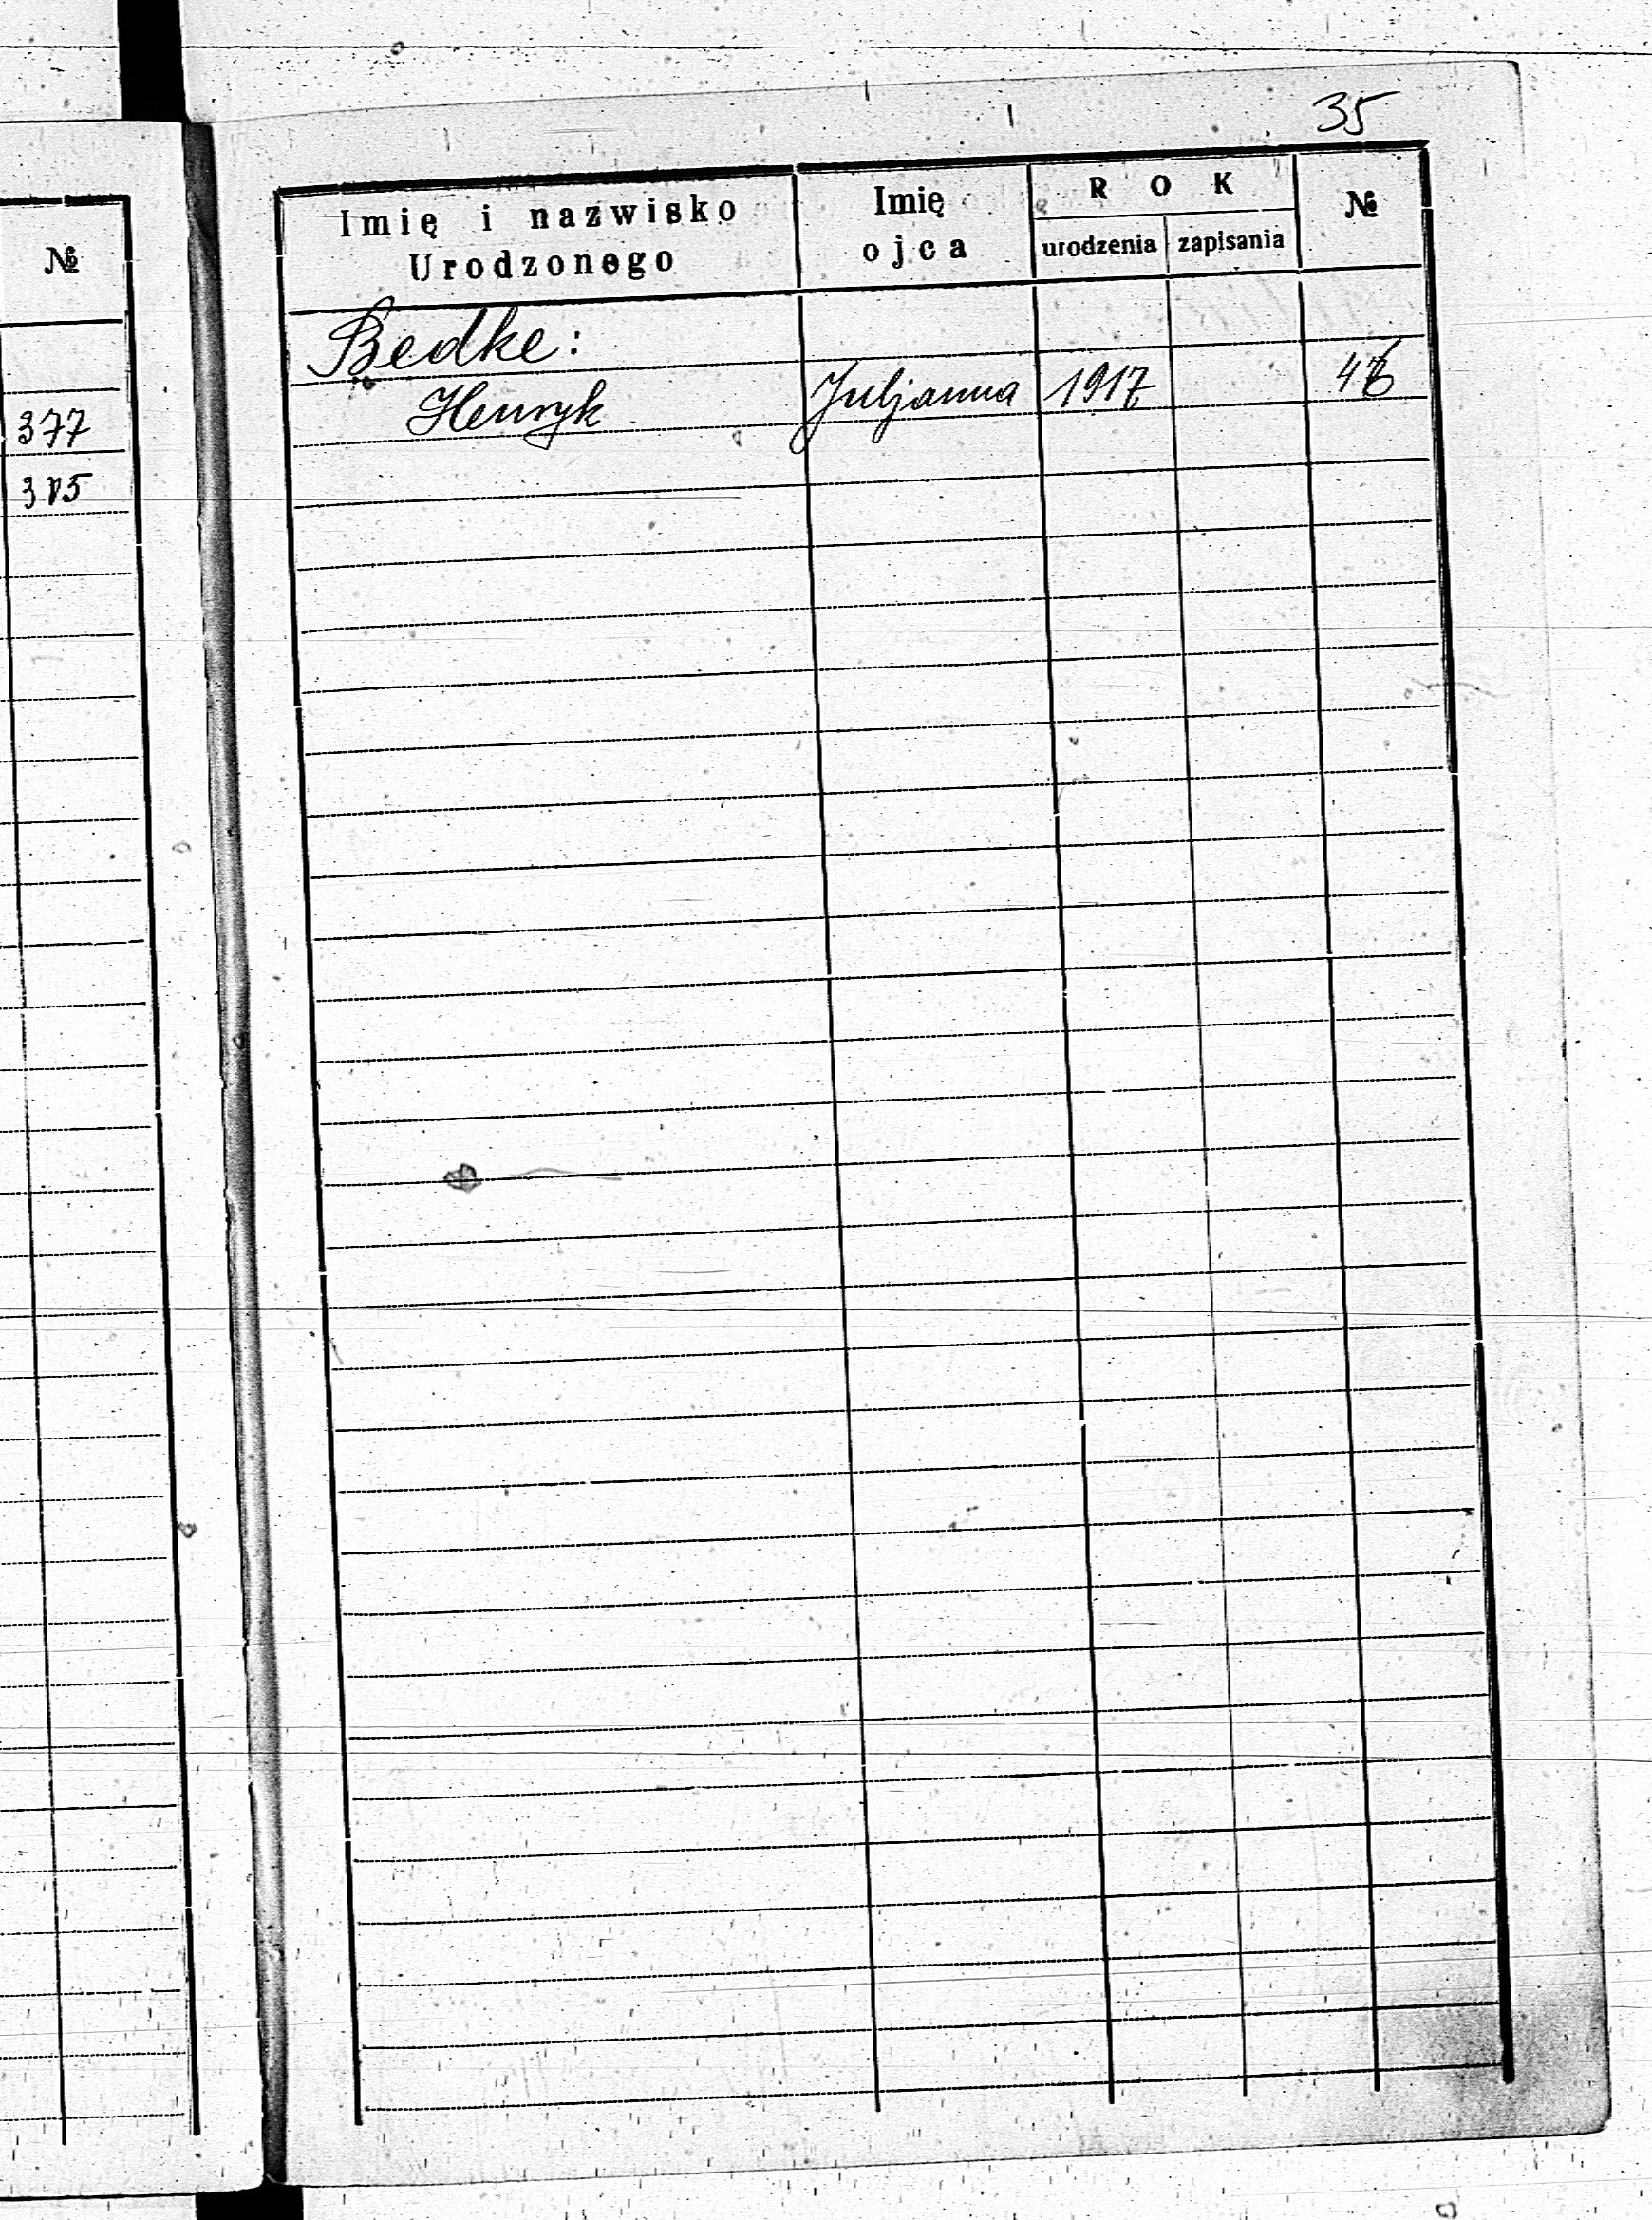 35
Imię i nazwisko Urodzonego
Imię ojca
ROK
urodzenia zapisania
№
№
Bedke:
Henryk Juljanna 1917
377